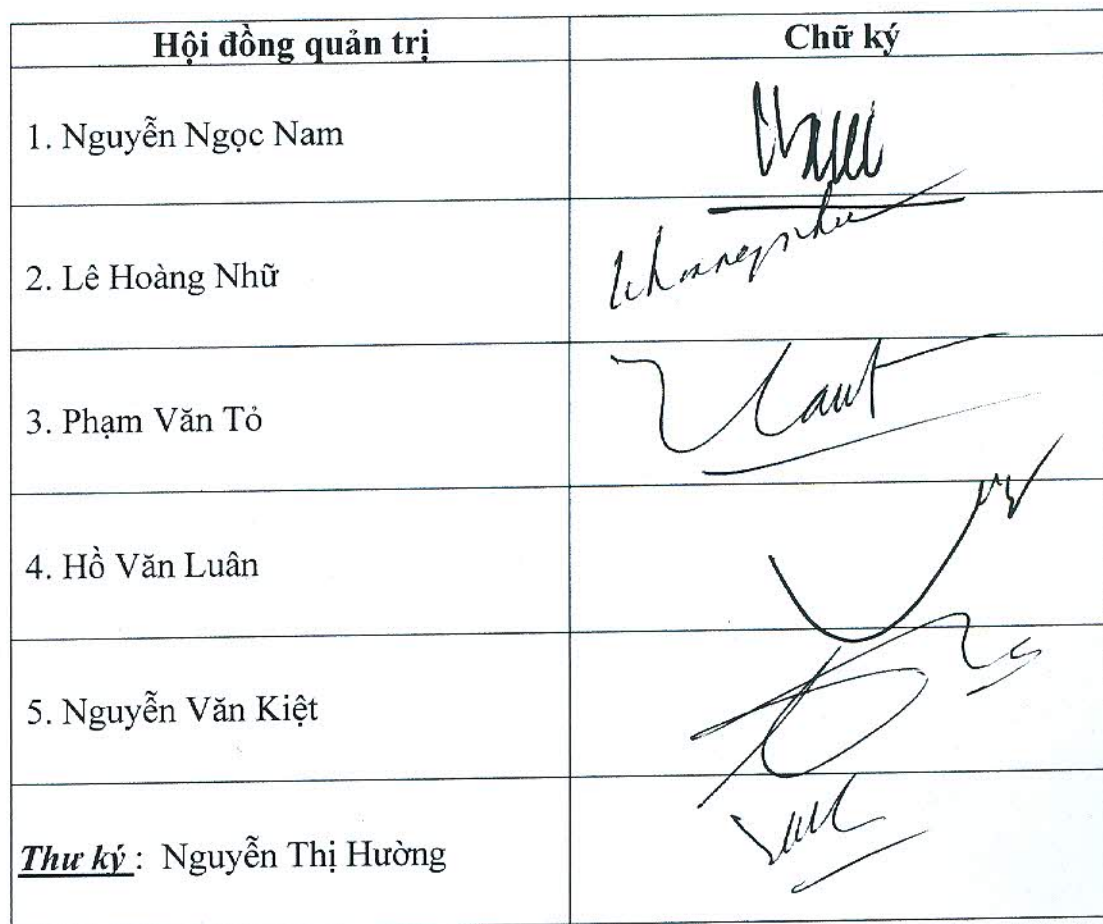 Hội đồng quản trị Chữ ký
1. Nguyễn Ngọc Nam
2. Lê Hoàng Nhữ
3. Phạm Văn Tỏ
4. Hồ Văn Luân
5. Nguyễn Văn Kiệt
Thư ký : Nguyễn Thị Hường